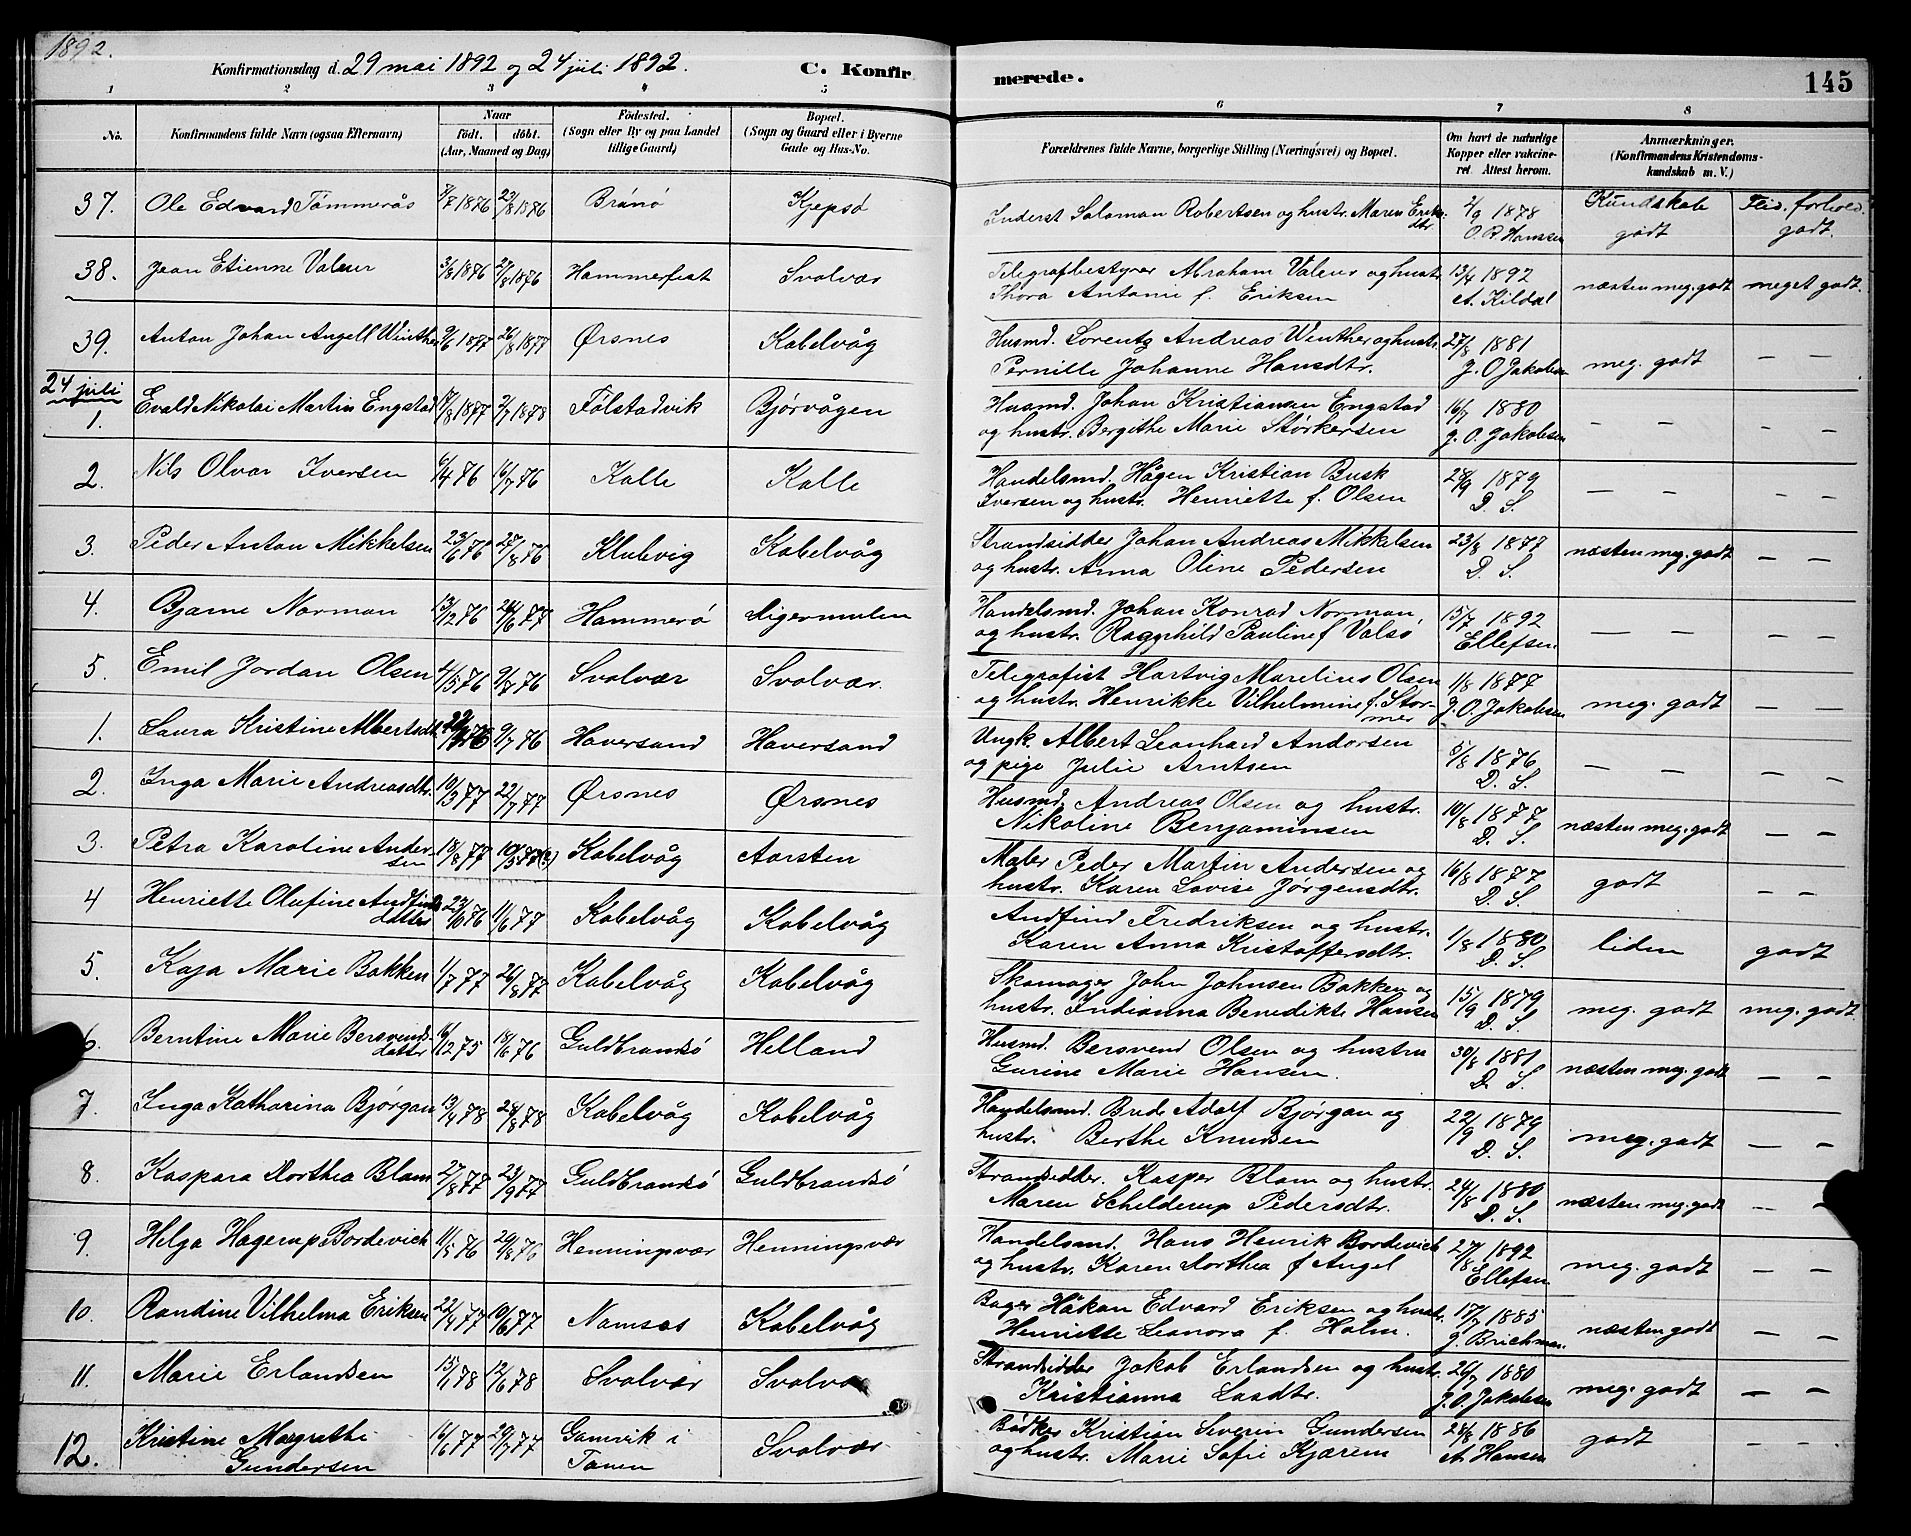 1892.
Konfirmationsdag d. 29 mai 1892 og 24 juli 1892. C. Konfir merede. 145
1 2 3 4 5 6 7 8
No. Konfirmandens fulde Navn (ogsaa Efternavn) Naar födt. döbt. (Aar, Maaned og Dag) Födested. (Sogn eller By og paa Landet tillige Gaard) Bopæl. (Sogn og Gaard eller i Byerne Gade og Hus-No. Forældrenes fulde Navne, borgerlige Stilling (Næringsvei) og Bopæl. Om havt de naturlige Kopper eller vakcineret. Attest herom. Anmærkninger. (Konfirmandens Kristendomskundskab m. V.)
37. Ole Edvard Tömmerås 7/7 1876 27/8 1876 Brönö Kjepsö Inderst Salomon Robertsen og hustr. Maren Eriksdtr. 2/9 1878 O. B. Hanssen Kundskab godt Flid. forhold. godt.
38. Jean Etienne Valeur 3/8 1876 27/8 1876 Hammerfest Svolvær Telegrafbestyrer Abraham Valeur og hustr.
Thora Antonie f. Eriksen 13/4 1892 A. Kildal næsten meg. godt meget godt.
39. Anton Johan Angell Winther 9/6 1877 26/8 1877 Ørsnes Kabelvåg Husmd. Lorentz Andreas Winther og hustr.
Pernille Johanne Hansdtr. 27/8 1881 J. O. Jakobsen meg. godt — —
24 juli
1. Evald Nikolai Martin Engstad 7/8 1877 2/7 1878 Følstadvik Bjørvågen Husmd. Johan Kristiansen Engstad
og hustr. Bergithe Marie Størkersen 16/7 1880 J. O. Jakobsen — — — —
2. Nils Olvar Iversen 6/4 76 16/7 76 Kalle Kalle Handelsmd. Hågen Kristian Busk
Iversen og hustr. Henriette f. Olsen 28/9 1879 D. S. — — — —
3. Peder Anton Mikkelsen 23/6 76 27/8 76 Klubvig Kabelvåg Strandsidder Johan Andreas Mikkelsen
og hustr. Anna Oline Pedersen 23/8 1877 D. S. næsten meg. godt — —
4. Bjarne Norman 13/12 76 24/6 77 Hammerö Digermulen Handelsmd. Johan Konrad Norman
og hustr. Ragnhild Pauline f Valsö 15/7 1892 Ellefsen — — — —
5. Emil Jordan Olsen 4/5 76 9/7 76 Svolvær Svolvær. Telegrafist Hartvig Marelius Olsen
og hustr. Henrikke Vilhelmine f. Stormer 1/8 1877 J. O. Jakobsen meg. godt — —
1. Laura Kristine Albertsdtr. 76 9/7 76 Haversand Haversand Ungk. Albert Leonhard Andorsen
og pige Julie Arntsen 5/8 1876 D. S. — — — —
2. Inga Marie Andreasdtr. 10/3 77 22/7 77 Ørsnes Ørsnes Husmd. Andreas Olsen og hustr.
Nikoline Benjaminsen 10/8 1877 D. S. næsten meg. godt — —
3. Petra Karoline Andersen 18/8 77 10/5 77(?) Kabelvåg Aarsten Maler Peder Martin Andersen og
hustr. Karen Lovise Jørgensdtr. 16/8 1877 D. S. godt — —
4 Henriette Olufine Andfindsdatter 23/10 76 11/6 77 Kabelvåg Kabelvåg Andfind Fredriksen og hustr.
Karen Anna Kristoffersdtr. 1/8 1880 D. S. liden godt
5. Kaja Marie Bakken 1/7 77 26/8 77 Kabelvåg Kabelvåg Skomager John Johnsen Bakken og
hustr. Indianna Benedikte Hansen 15/9 1879 D. S. meg. godt meg. godt
6. Berntine Marie Bersvendsdatter 6/12 75 18/6 76 Guldbrandsö Helland Husmd. Bersvend Olsen og hustru
Gurine Marie Hansen. 30/8 1881 D. S. næsten meg. godt — —
7. Inga Katharina Bjørgan 13/4 78 28/8 78 Kabelvåg Kabelvåg Handelsmd. Brede Adolf Bjørgan og
hustr. Berthe Knudsen 22/9 1879 D. S. meg. godt — —
8. Kaspara Dorthea Blam 27/8 77 23/9 77 Guldbrandsö Guldbrandsö Strandsidder. Kasper Blam og hustr.
Maren Schelderup Pedersdtr. 24/8 1880 D. S. næsten meg. godt — —
9. Helga Hagerup Bordevick 11/5 76 29/8 76 Henningsvær Henningsvær Handelsmd. Hans Henrik Bordevick
og hustr. Karen Dorthea f Angel 27/8 1892 Ellefsen meg. godt — —
10. Randine Vilhelma Eriksen 22/4 77 10/6 77 Namsos Kabelvåg Bager Håkan Edvard Eriksen og hustr.
Henriette Leonora f. Holm. 17/7 1885 J. Brichman næsten godt — —
11. Marie Erlandsen 15/1 78 12/6 78 Svolvær Svolvær Strandsidder Jakob Erlandsen og hustr.
Kristianna Larsdtr. 26/7 1880 J. O. Jakobsen meg. godt — —
12. Kristine Margrethe Gundersen 16/6 77 29/7 77 Gamvik i Tanen Svolvær Bödker Kristian Severin Gundersen
og hustr. Marie Sofie Kjærem 28/8 1886 A Hansen godt — —